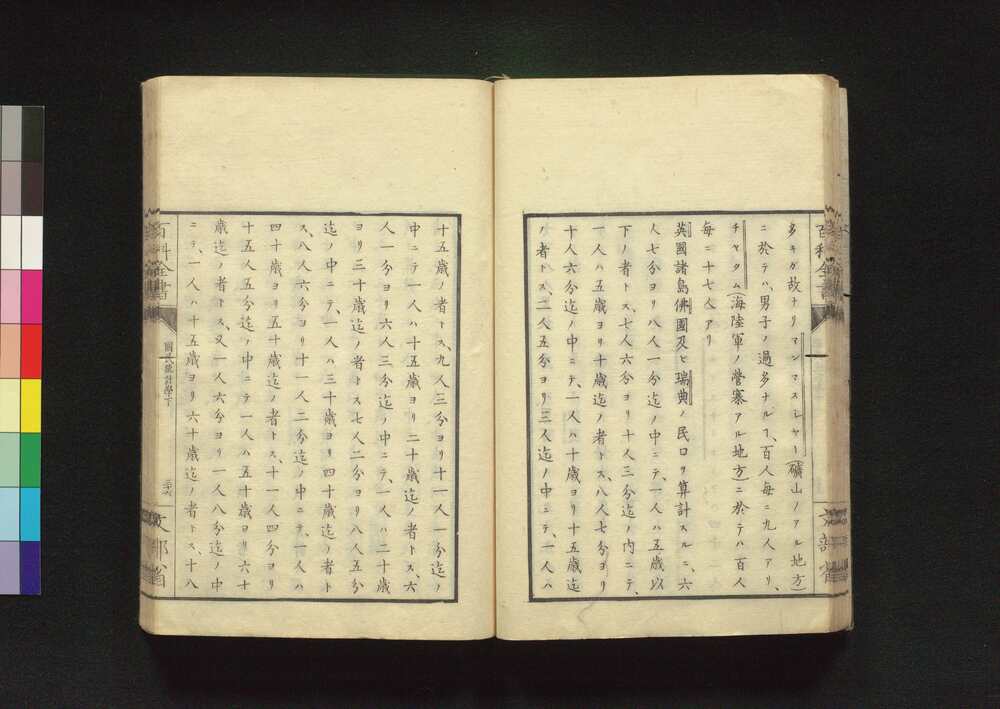 多キガ故ナリマンマスシヤー(礦山ノアル地方)
ニ於テハ、男子ノ過多ナルヿ、百人每ニ九人アリ、
チヤタム(海陸軍ノ營寨アル地方)ニ於テハ百人
每ニ十七人アリ
英國諸島佛國及ヒ瑞典ノ民口ヲ算計スルニ、六
人七分ヨリ八人一分迄ノ中ニテ、一人ハ五歲以
下ノ者トス、七人六分ヨリ十人三分迄ノ内ニテ、
一人ハ五歲ヨリ十歲迄ノ者トス、八人七分ヨリ
十人六分迄ノ中ニテ、一人ハ十歲ヨリ十五歲迄
ノ者トス、二人五分ヨリ三人迄ノ中ニテ、一人ハ
百科全書
文部省
十五歲ノ者トス、九人三分ヨリ十一人一分迄ノ
中ニテ一人ハ十五歲ヨリ二十歲迄ノ者トス、六
人一分ヨリ六人三分迄ノ中ニテ、一人ハ二十歲
ヨリ三十歲迄ノ者トス七人二分ヨリ八人五分
迄ノ中ニテ、一人ハ三十歲ヨリ四十歲迄ノ者ト
ス、八人六分ヨリ十一人二分迄ノ中ニテ、一人ハ
四十歲ヨリ五十歲迄ノ者トス、十一人四分ヨリ
十五人五分迄ノ中ニテ一人ハ五十歲ヨリ六十
歲迄ノ者トス、又一人六分ヨリ一人八分迄ノ中
ニテ、一人ハ十五歲ヨリ六十歲迄ノ者トス、十八
百科全書
國民統計學下
三十六
文部省